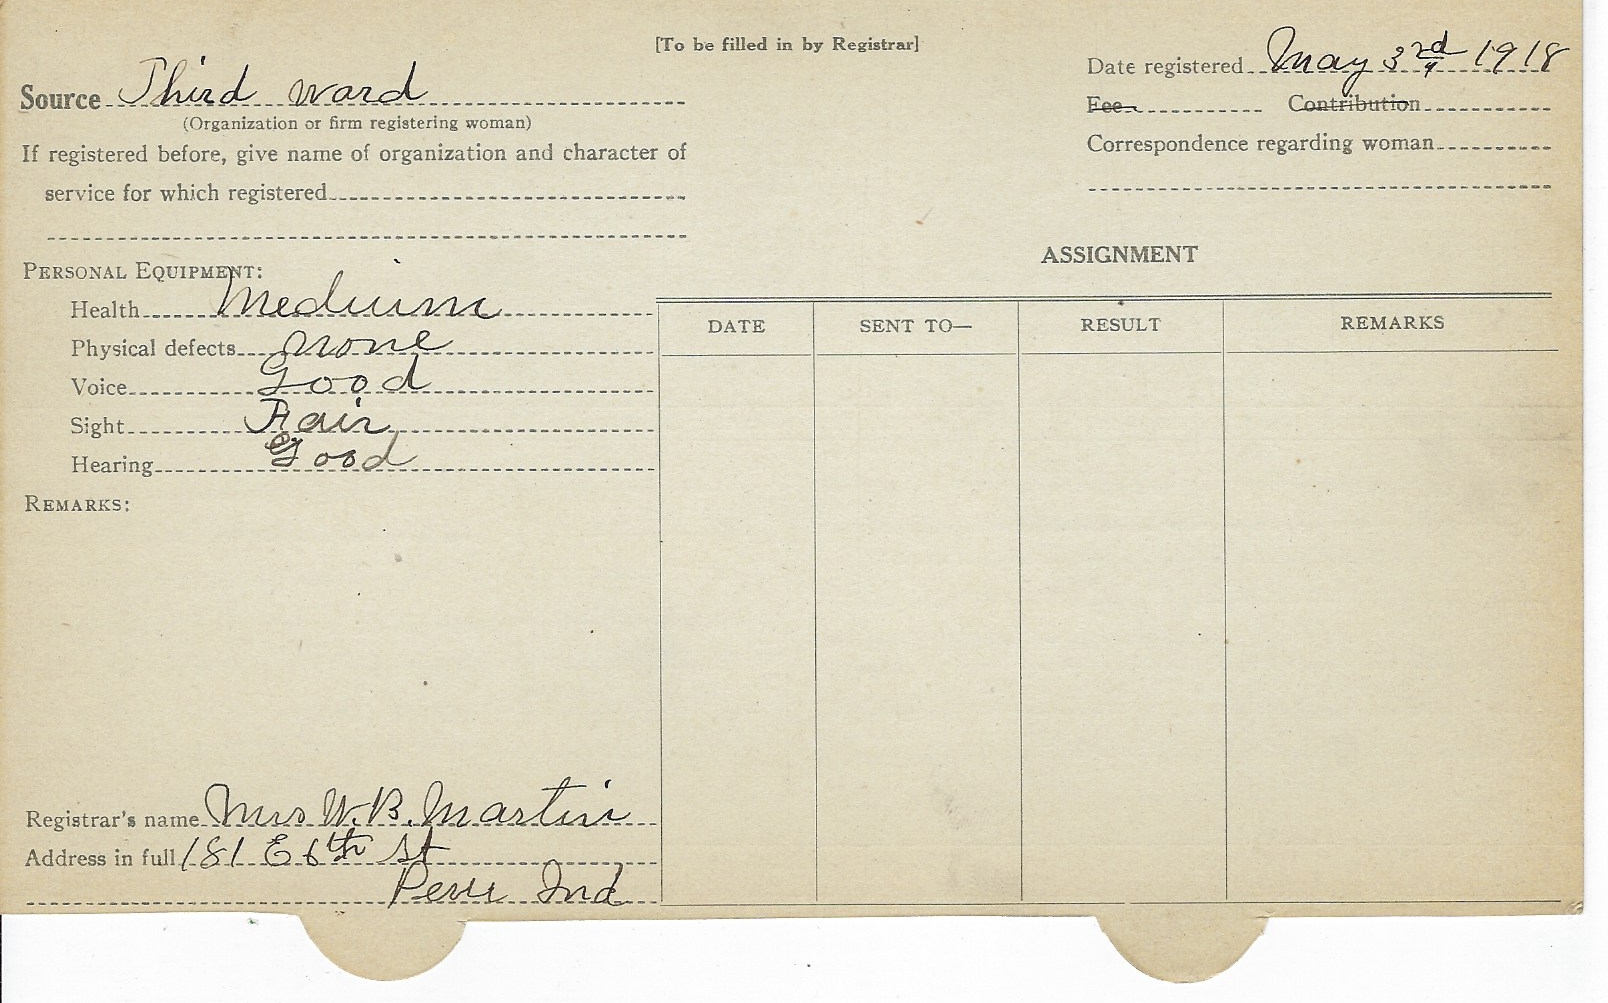 [To be filled in by Registrar]
Date registered May 3rd 1918
Source Third ward
Fee Contribution
(Organization or firm registering woman)
Correspondence regarding woman
If registered before, give name of organization and character of
service for which registered
ASSIGNMENT
PERSONAL EQUIPMENT:
Health Medium
Physical defects none
Voice Good
Sight Fair
Hearing Good
DATE SENT TO— RESULT REMARKS
REMARKS:
Registrar's name Mrs W. B. Martin
Address in full 181 E 6th St
Peru Ind